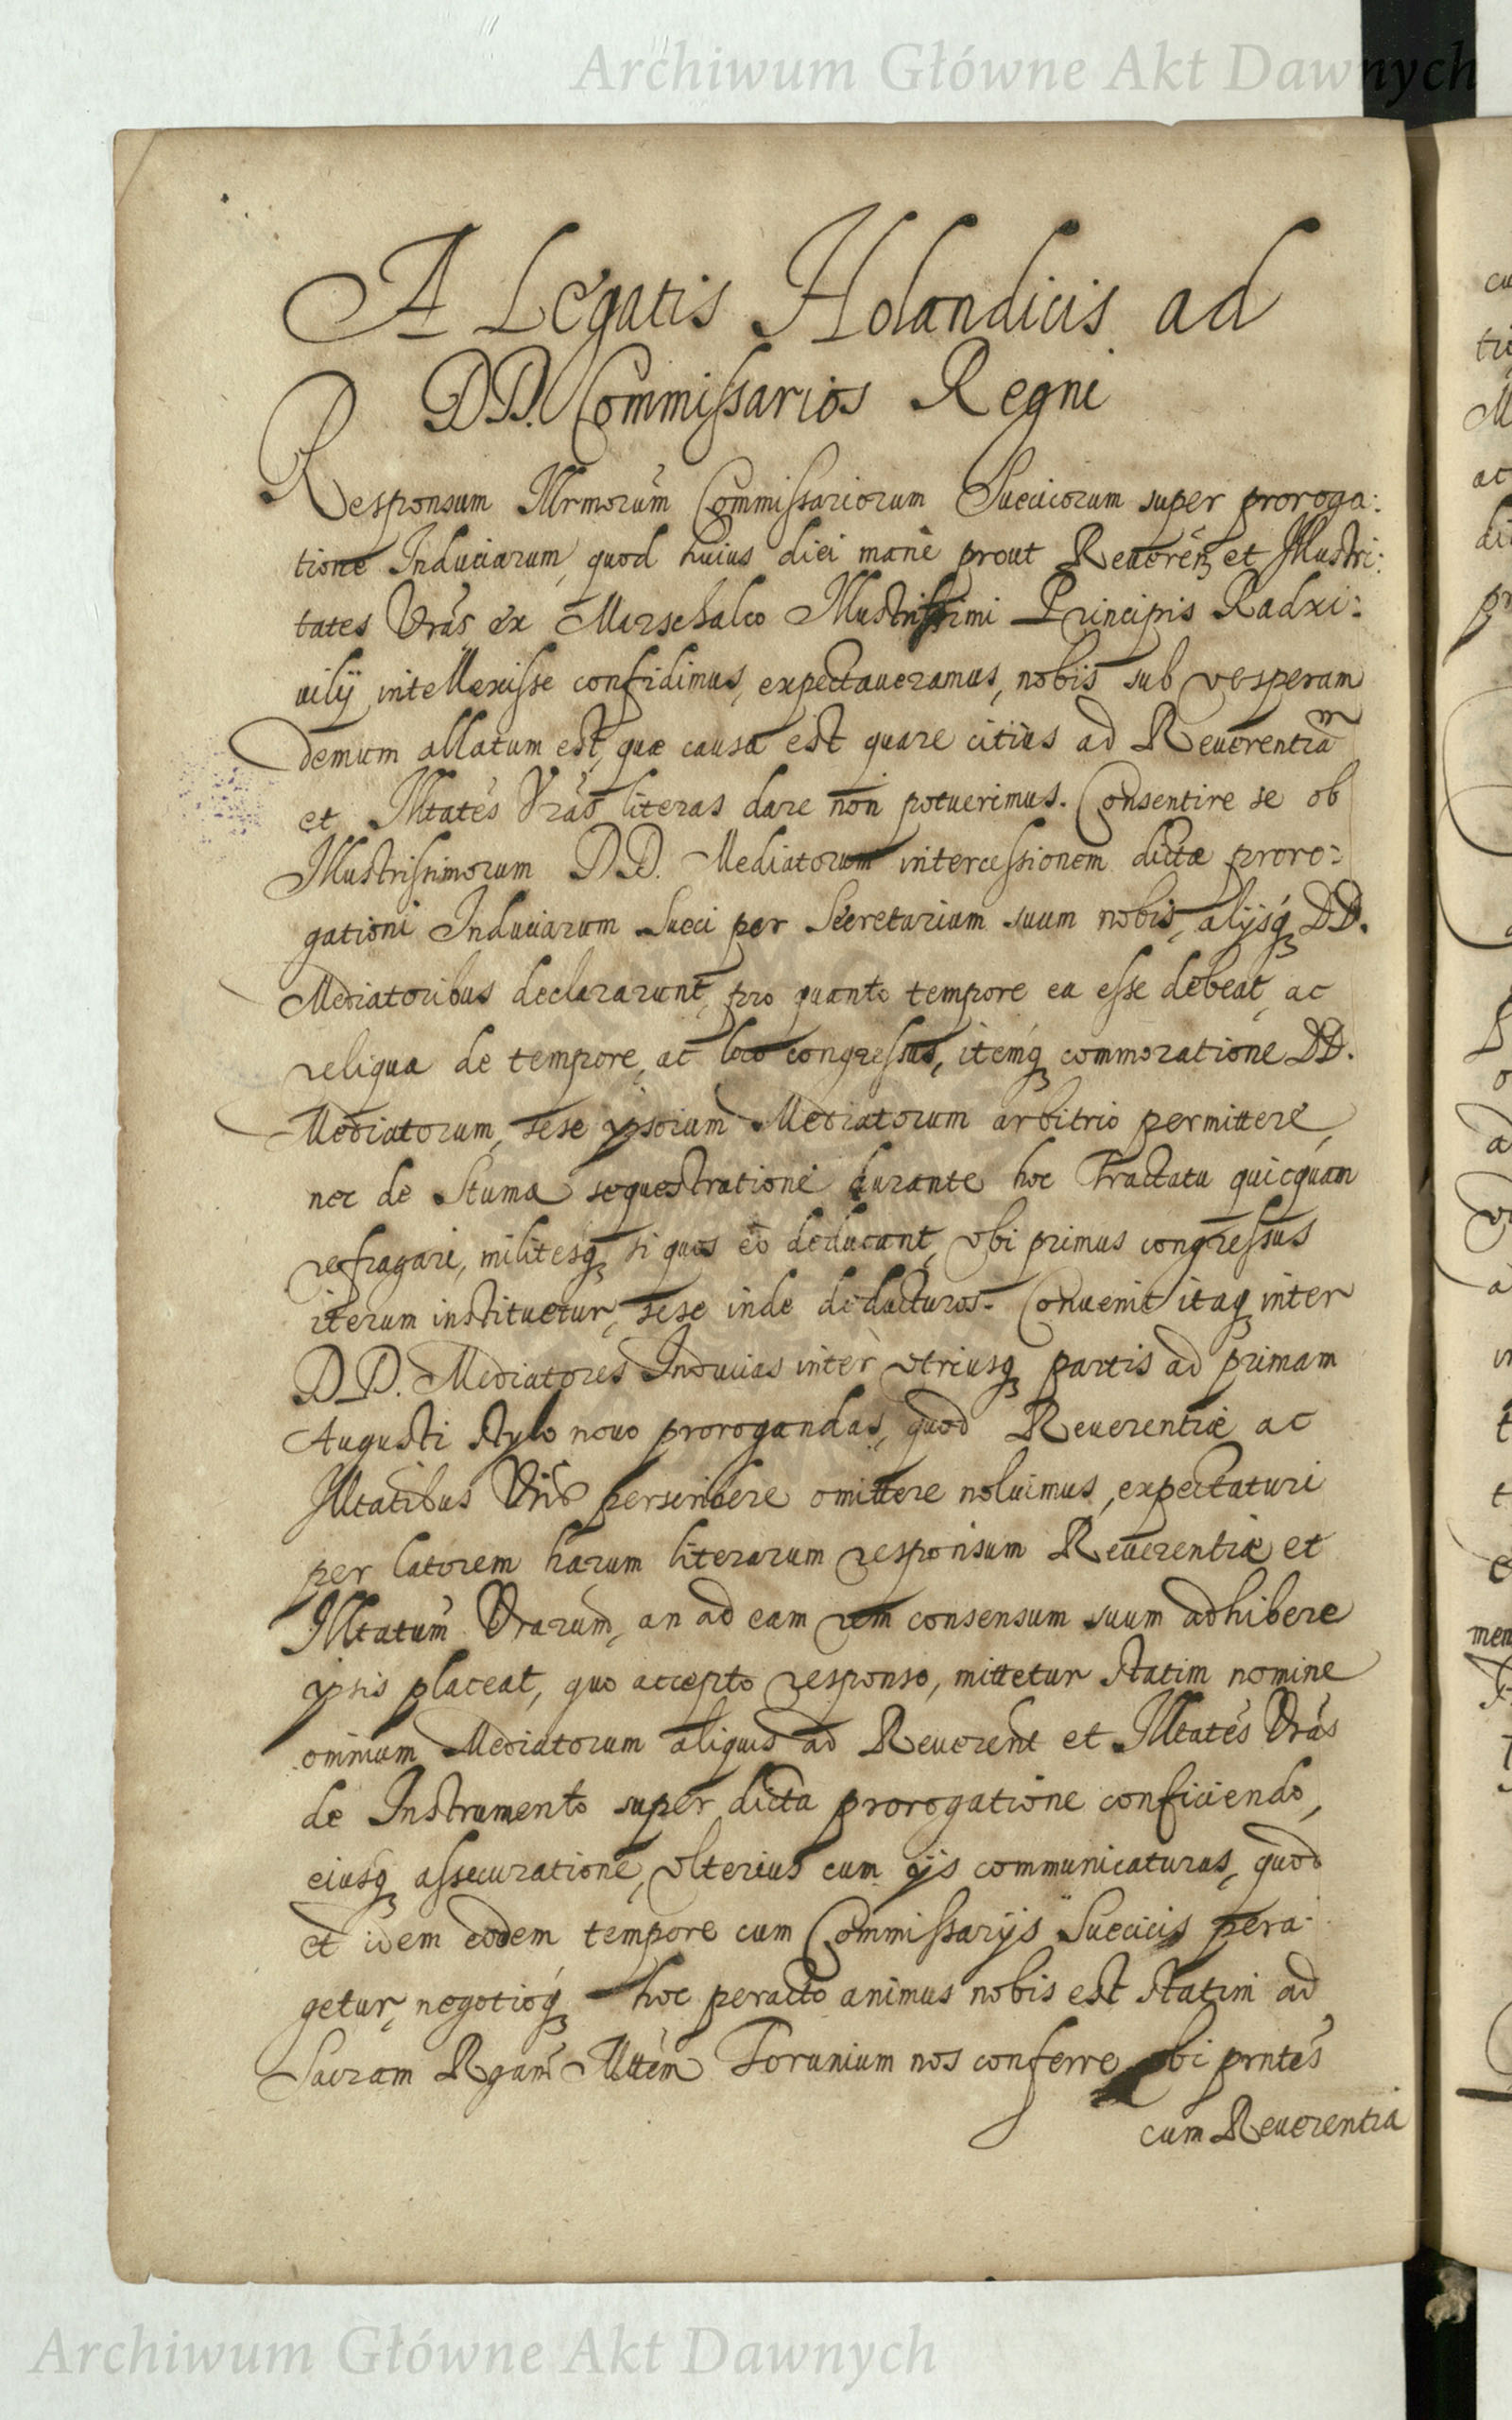 Archiwum Główne Akt Dawnych
A Legatis Holandicis ad
DD. Commissarios Regni
Responsum Illrmorum Commissariorum Suecicorum super proroga:
tione Induciarum, quod huius diei mane prout Reveren et Illustri:
tates Vras ex Marschalco Illustrissimi Principis Radxi:
uilij intellexisse confidimus, expectaueramus, nobis sub vesperam
demum allatum est, quae causa est quare citius ad Reuerentiam
et Illtates Vras literas dare non potuerimus. Consentire se ob
Illustrissimorum DD. Mediatorum intercessionem dictae proro:
gationi Induciarum Sueci per Secretarium suum nobis, alijsq DD.
Mediatoribus declararunt, pro quanto tempore ea esse debeat, ac
reliqua de tempore, ac loco congressus, itemq commoratione DD.
Mediatorum, sese ipsorum Mediatorum arbitrio permittere,
nec de Stuma sequestratione durante hoc Tractatu quicquam
refragari, militesq si quos eo deducant, vbi primus congressus
iterum instituetur, sese inde deducturos. Conuenit itaq inter
DD. Mediatores Inducias inter vtriusq partis ad primam
Augusti stylo nouo prorogandas, quod Reuerentiae ac
Illtatibus Vris perscribere omittere noluimus, expectaturi
per latorem harum literarum responsum Reuerentiae et
Illtatum Vrarum, an ad eam rem consensum suum adhibere
ipsis placeat, quo accepto responso, mittetur statim nomine
omnium Mediatorum aliquis ad Reuerent et Illtates Vras
de Instrumento super dicta prorogatione conficiendo,
eiusq assecuratione, vlterius cum ijs communicaturus, quod
et idem eodem tempore cum Commissarijs Suecicis pera:
getur, negotioq hoc peracto animus nobis est statim ad
Sacram Rgam Mttem Torunium nos conferre vbi prntes
cum Reuerentia
Archiwum Główne Akt Dawnych